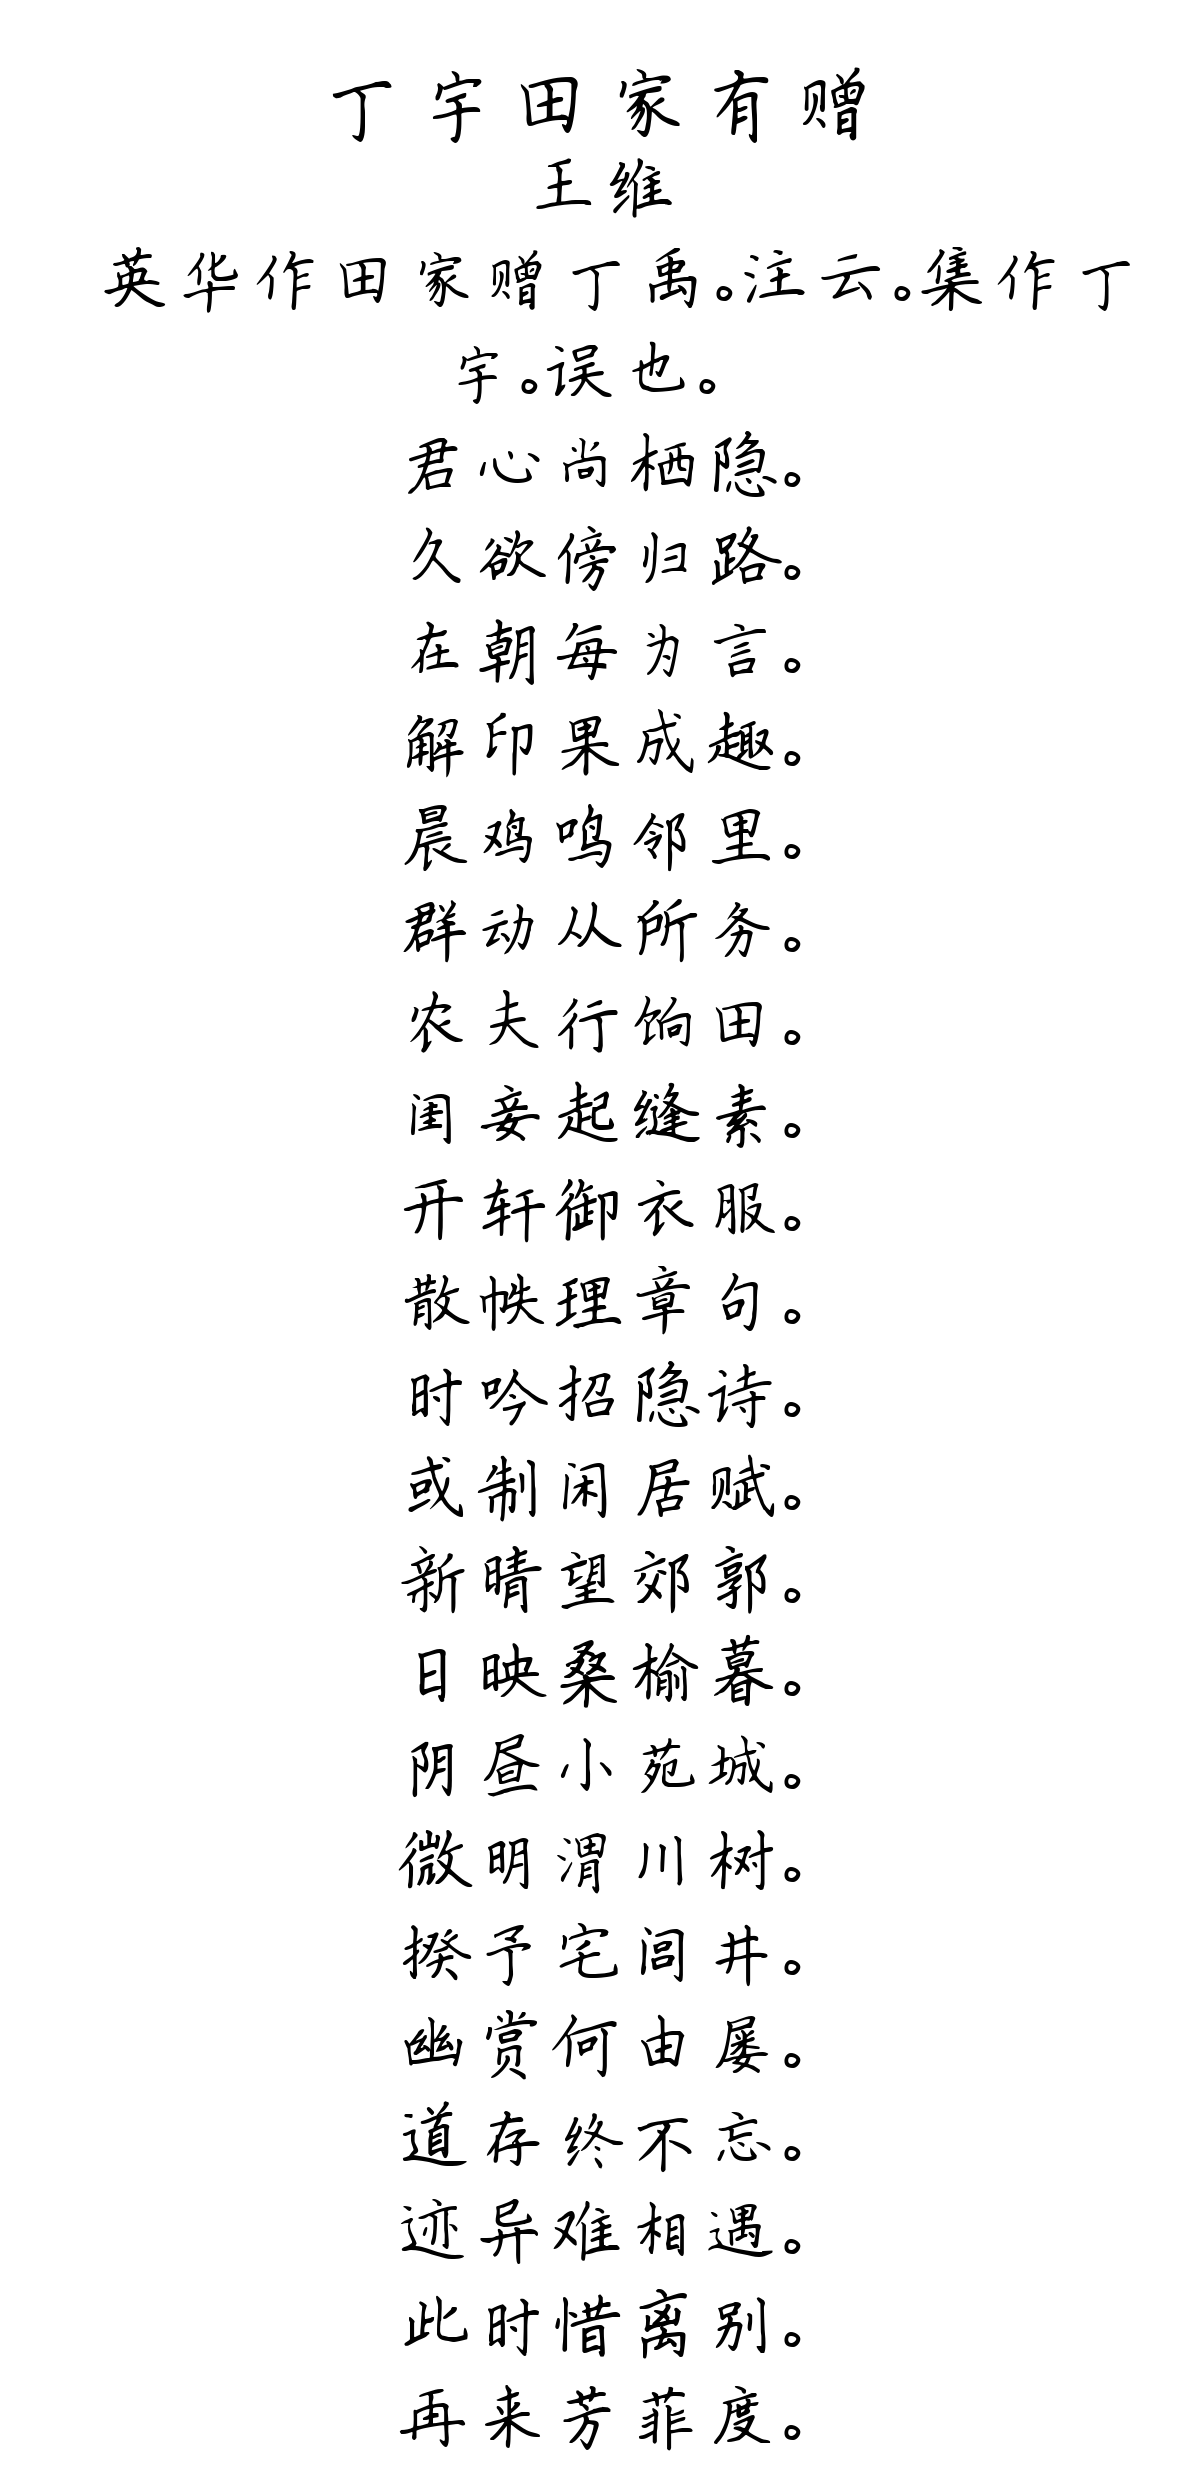 丁宇田家有赠
王维
英华作田家赠丁禹。注云。集作丁
宇。误也。
君心尚栖隐。
久欲傍归路。
在朝每为言。
解印果成趣。
晨鸡鸣邻里。
群动从所务。
农夫行饷田。
闺妾起缝素。
开轩御衣服。
散帙理章句。
时吟招隐诗。
或制闲居赋。
新晴望郊郭。
日映桑榆暮。
阴昼小苑城。
微明渭川树。
揆予宅闾井。
幽赏何由屡。
道存终不忘。
迹异难相遇。
此时惜离别。
再来芳菲度。